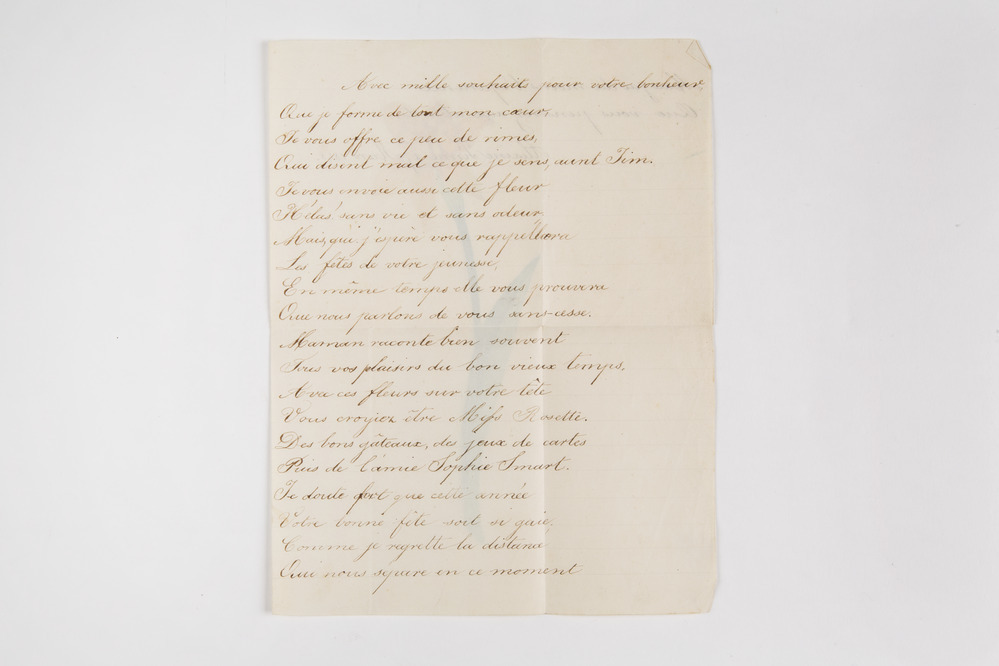 Avec mille souhaits pour votre bonheur,
Que je forme de tout mon cœur,
Je vous offre ce peu de rimes,
Qui disent mal ce que je sens, aunt Jim.
Je vous envoie aussi cette fleur
Hélas' sans vie et sans odeur.
Mais, qui j'espère vous rappellera
Les fêtes de votre jeunesse,
En même temps elle vous prouvera
Que nous parlons de vous sans-cesse.
Maman raconte bien souvent
Tous vos plaisirs du bon vieux temps,
Avec ces fleurs sur votre tête
Vous croyiez être Miss Rosette.
Des bons gâteaux, des jeux de cartes
Puis de l'amie Sophie Smart.
Je doute fort que cette année
Votre bonne fête soit si gaie,
Comme je regrette la distance
Qui nous sépare en ce moment